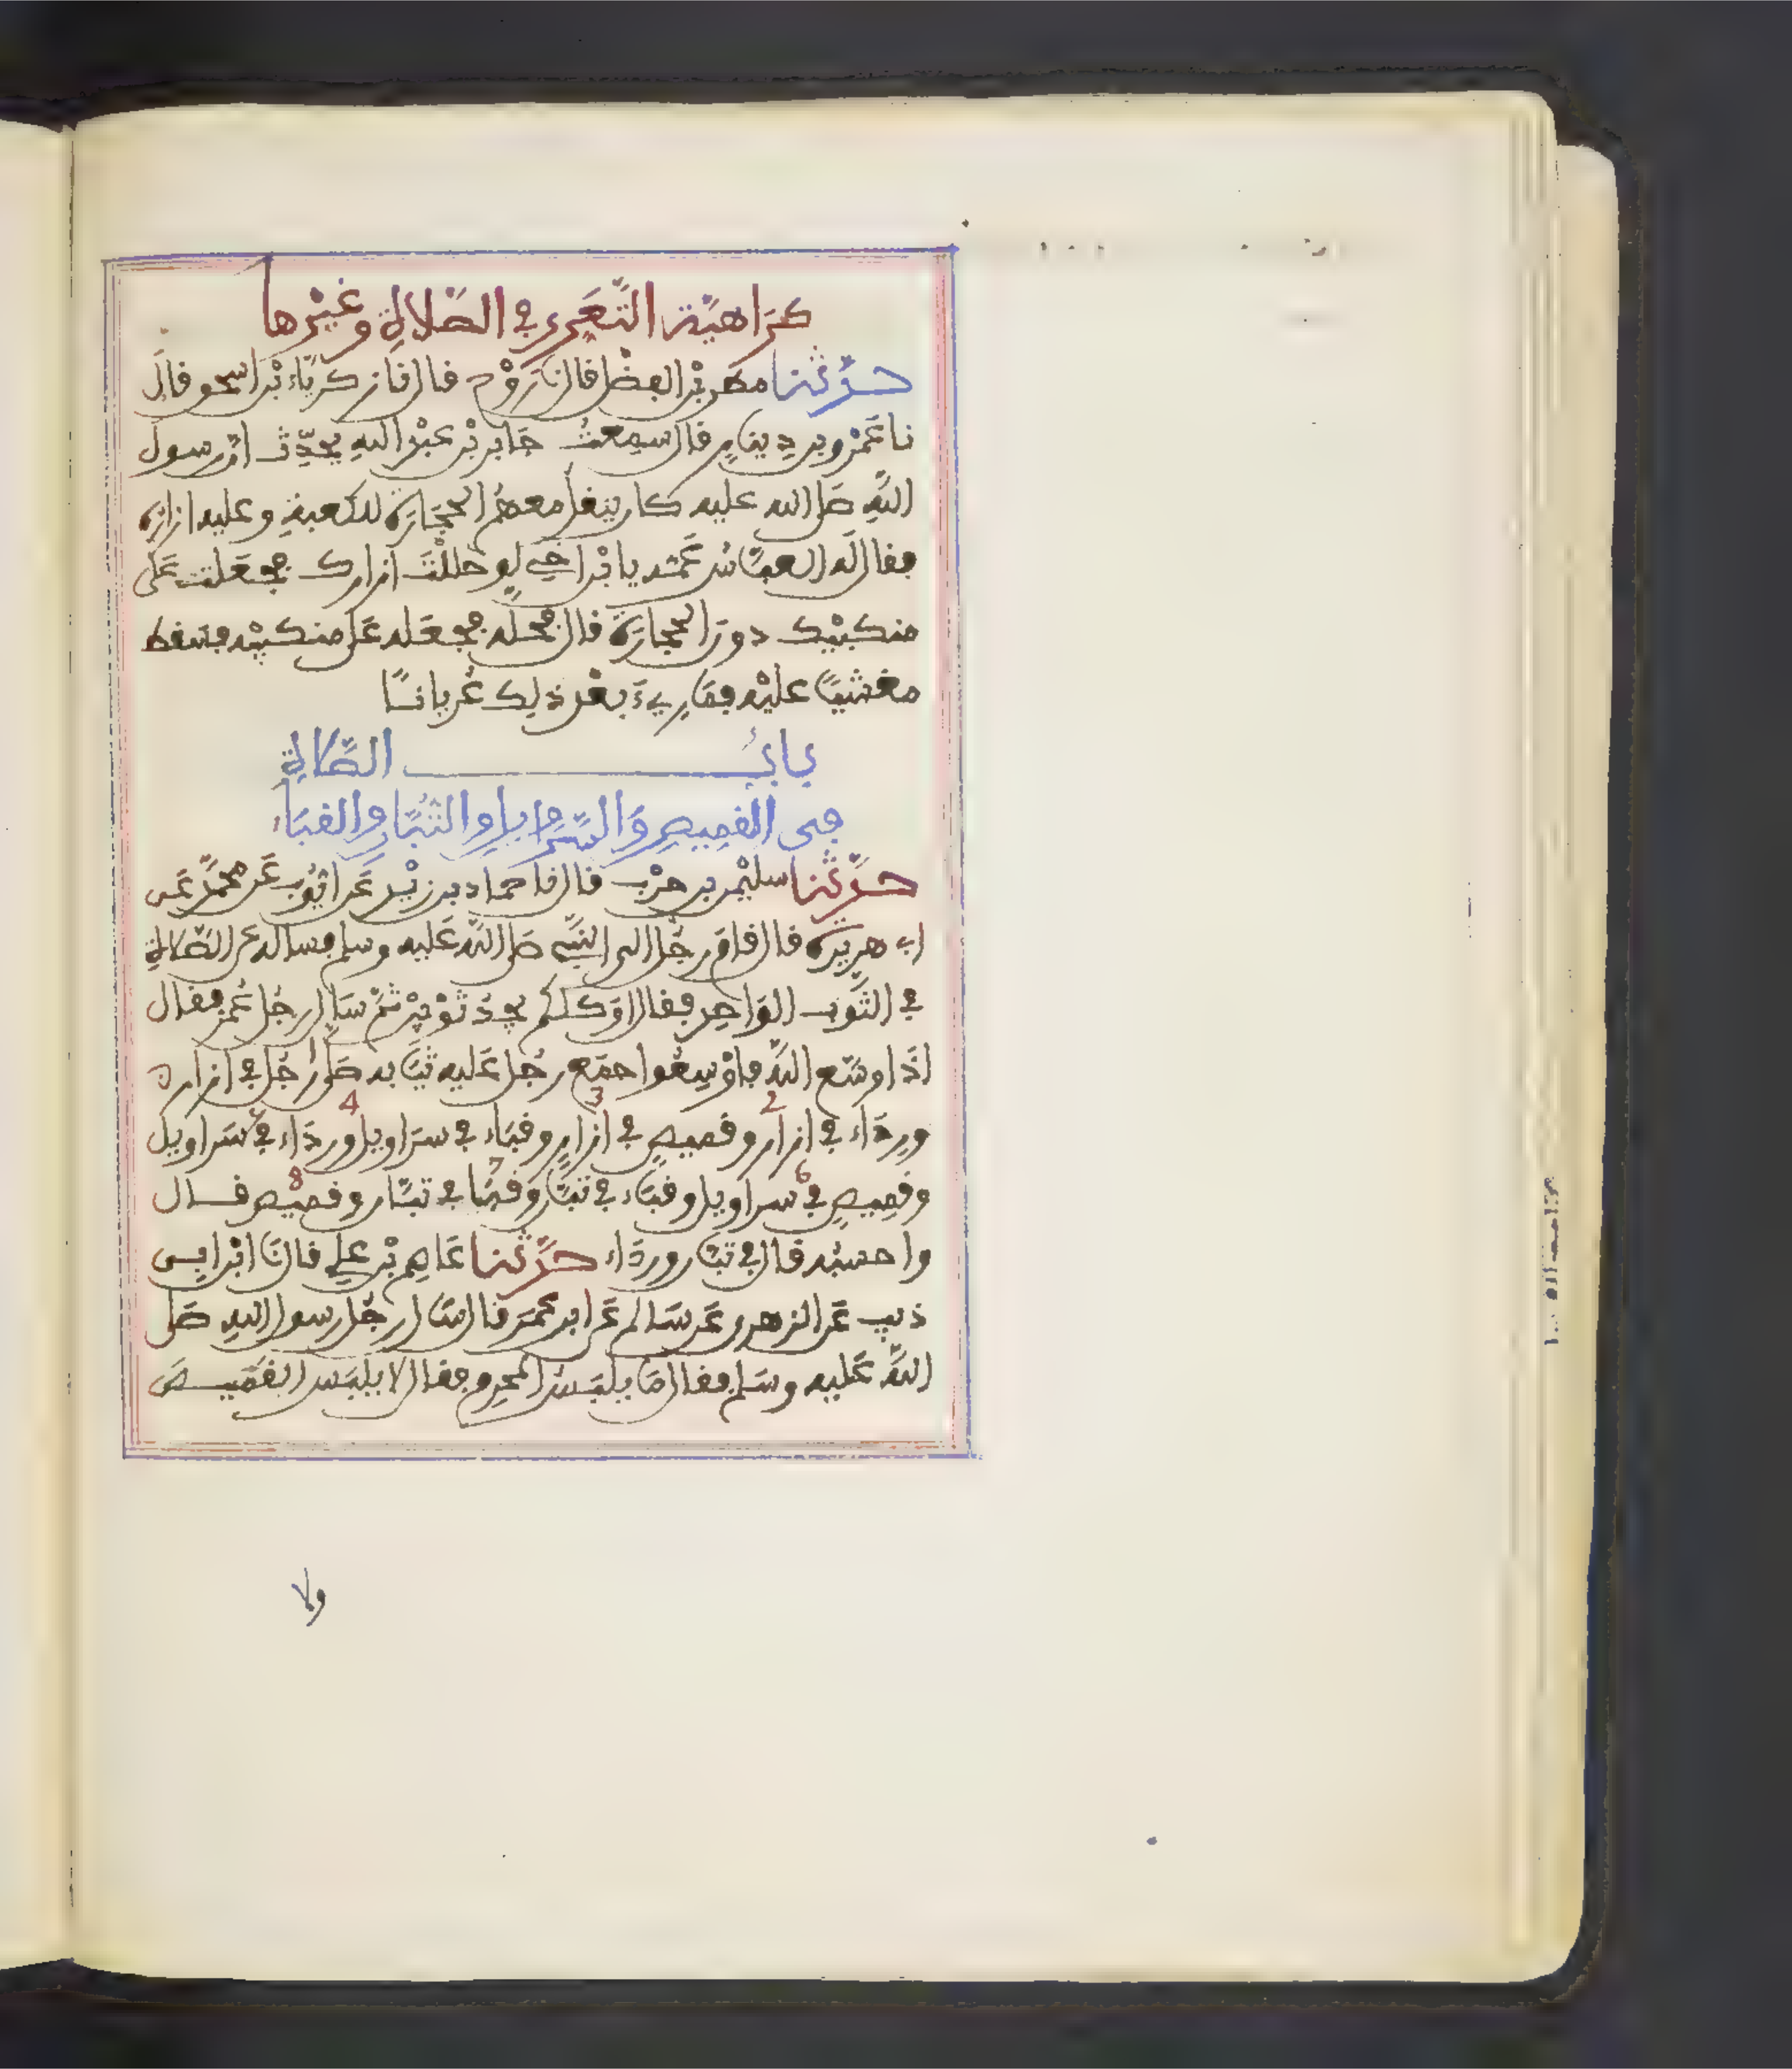 كَرَاهِيَّة التَّعَرِّي في الصَّلاةِ وغَيْرِها
حدَّثنا مطر بْن الفضل قال نا رَوْح قال نا زكرياء بْن اسحق قال
نا عَمْرو بن دِينارٍ قال سمعتُ جَابر بْن عبْد اللهِ يحدِّث ان رسول
اللهِ صلى الله عليه كان ينقل معهُم الحجَارَة للكعبةِ وعليه ازاره
فقال له العبَّاسُ عَمُّه يا ابْن اخِي لو حللْتَ ازارك فجعَلتَ عَلى
منكبيْك دون الحجارَة قال فحلَّه فجعَله عَلى منكبيْه فسَقط
مغشيًّا عليْه فمَا رِيءَ بعْد ذلِك عُريانًا
بابُ الصَّلاةِ
في القميصِ وَالسَّرَاويلِ والتُّبَّانِ والقبَاءِ
حدَّثنا سليْمن بن حرْب قال نا حماد بن زيْد عَن ايُّوب عَن محمَّد عَن
ابي هريرة قال قام رجُل الى النبيّ صلى اللهُ عَليه وسلم فساله عن الصَّلاةِ
في الثَّوب الوَاحِد فقال اوَكلكم يجدُ ثوْبيْن ثمَّ سَال رجُل عُمر فقال
اذَا وسَّع اللهُ فاوْسِعُوا جمَع رجُل عَليه ثيَابه صَلى رجُل في ازاره
ورِدَاء 2 في ازار وقميصٍ 3 في ازارٍ وقبَاء 4 في سرَاويل وردَاء في سَراويل
وقميصٍ 6 في سراويل وقبَاء في تبَّان وقبَا 7 في تبَّان وقميْصٍ 8 قال
واحسبُه قال في تبَّان وردَاء حدَّثنا عَاصِم بْن علي قال نَا ابْن ابي
ذئب عَن الزهري عَن سَالم عَن ابن عُمَر قال سَال رجُل رسول اللهِ صَلى
اللهُ عَليه وسَلم فقال مَا يلبَسُ المحرِم فقال لا يلبَس القَمِيصَ
ولا